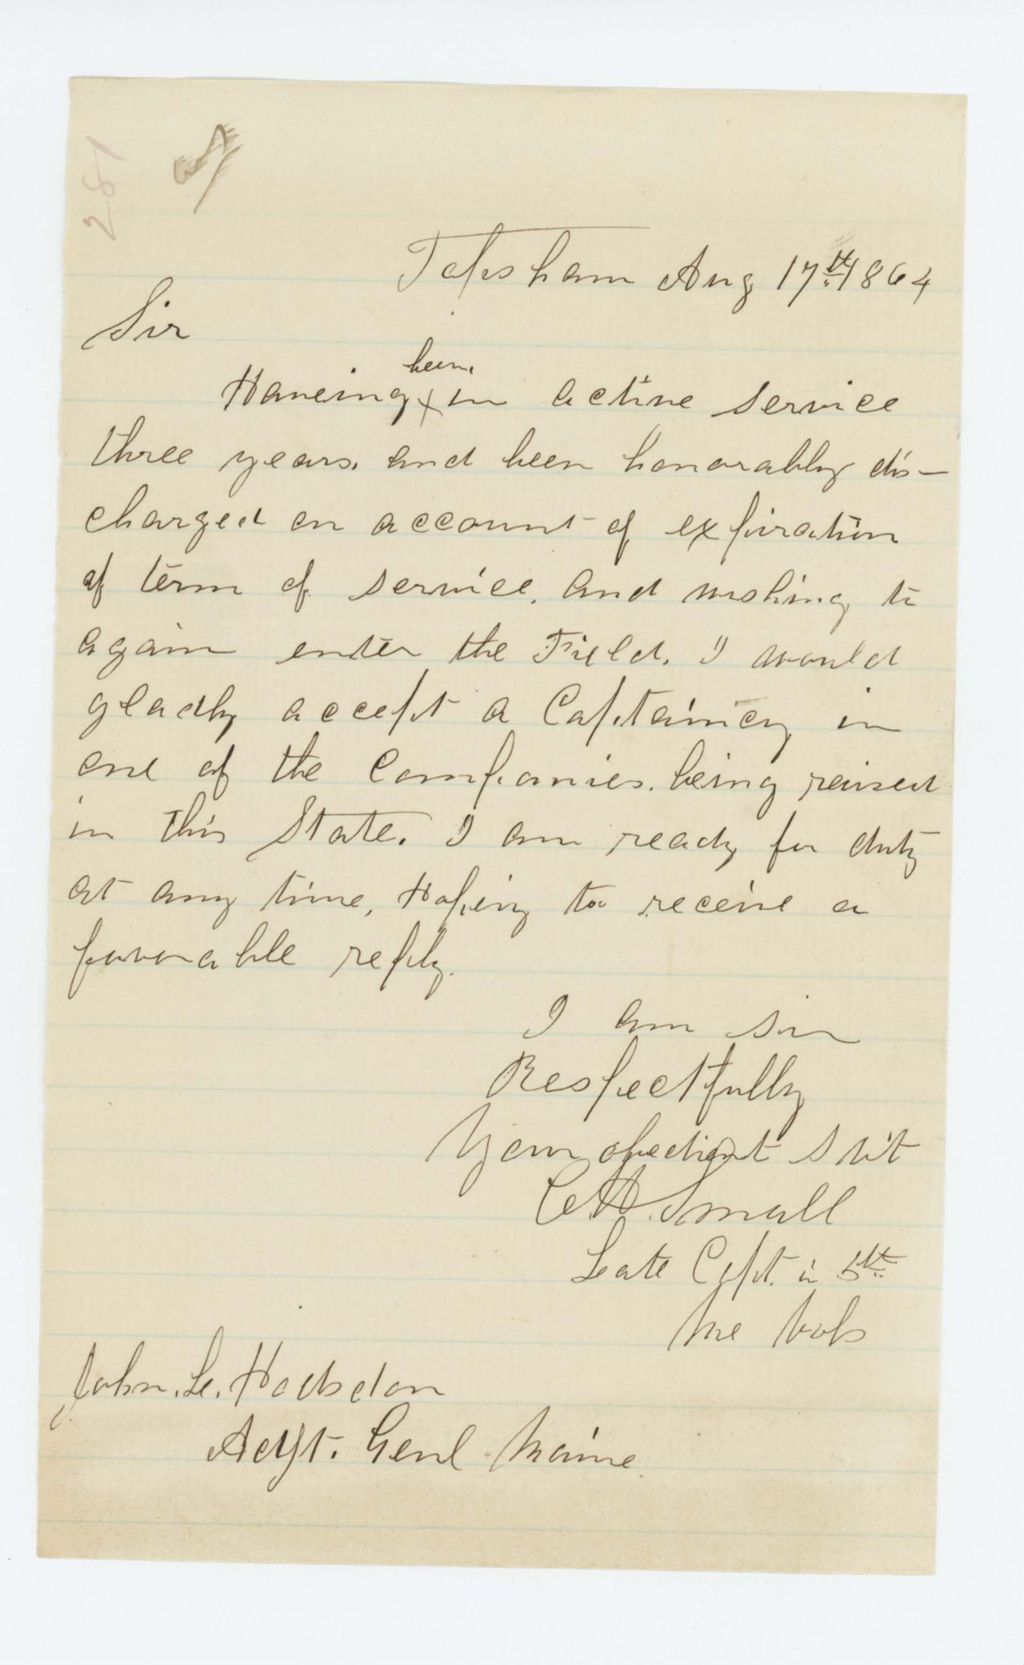 281
Topsham Aug 17th 1864
Sir
Haveing been in active service
three years. and been honorably dis-
charged on account of expiration
of term of service. and wishing to
again enter the Field. I would
gladly accept a Captaincy in
one of the Companies. being raised
in this State. I am ready for duty
at any time, Hoping to receive a
favorable reply.
I am sir
Respectfully
Your obedient Svt
C.H. Small
Late Capt. in 5th
Me Vols
John. L. Hodsdon
Adjt. Genl Maine